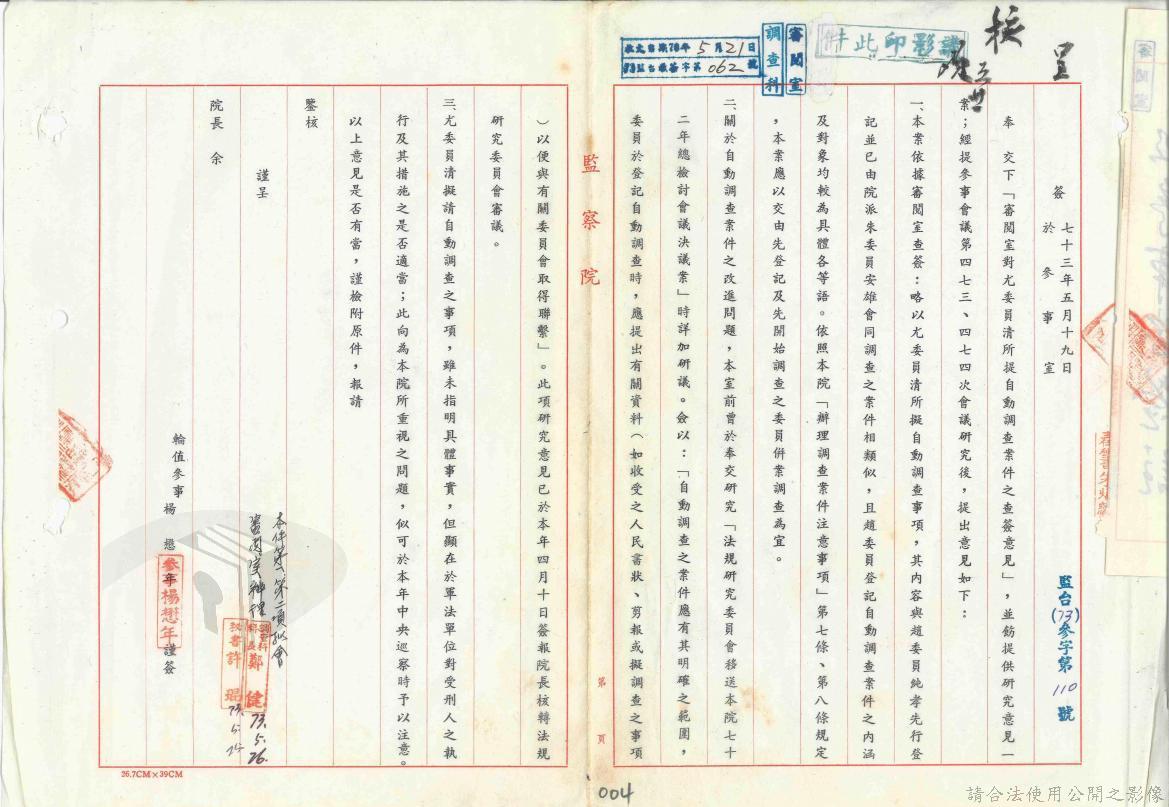 呈
核
請影印此件
審閱室
調查科
收文台樂73年5月21日
062號
簽
七十三年五月十九日
於參事室
監台(73)參字第110號
奉　交下「審閱室對尤委員清所提自動調查案件之查簽意見」，並飭提供研究意見一
案；經提參事會議第四七三、四七四次會議研究後，提出意見如下：
一、本案依據審閱室查簽：略以尤委員清所擬自動調查事項，其內容與趙委員純孝先行登
記並已由院派朱委員安雄會同調查之案件相類似，且趙委員登記自動調查案件之內涵
及對象均較為具體各等語。依照本院「辦理調查案件注意事項」第七條、第八條規定
，本案應以交由先登記及先開始調查之委員併案調查為宜。
二、關於自動調查案件之改進問題，本室前曾於奉交研究「法規研究委員會移送本院七十
二年總檢討會議決議案」時詳加研議。僉以：「自動調查之案件應有其明確之範圍，
委員於登記自動調查時，應提出有關資料（如收受之人民書狀、剪報或擬調查之事項
監察院
第　頁
）以便與有關委員會取得聯繫」。此項研究意見已於本年四月十日簽報院長核轉法規
研究委員會審議。
三、尤委員清擬請自動調查之事項，雖未指明具體事實，但顯在於軍法單位對受刑人之執
行及其措施之是否適當；此向為本院所重視之問題，似可於本年中央巡察時予以注意。
以上意見是否有當，謹檢附原件，報請
鑒核
謹呈
院長　余
輪值參事楊懋年謹簽
參事楊懋年
本件第一、第二項擬會
審閱室辦理
調查科科長鄭健
73.5.26.
秘書許琨
73.5.25.
26.7CM×39CM
004
請合法使用公開之影像